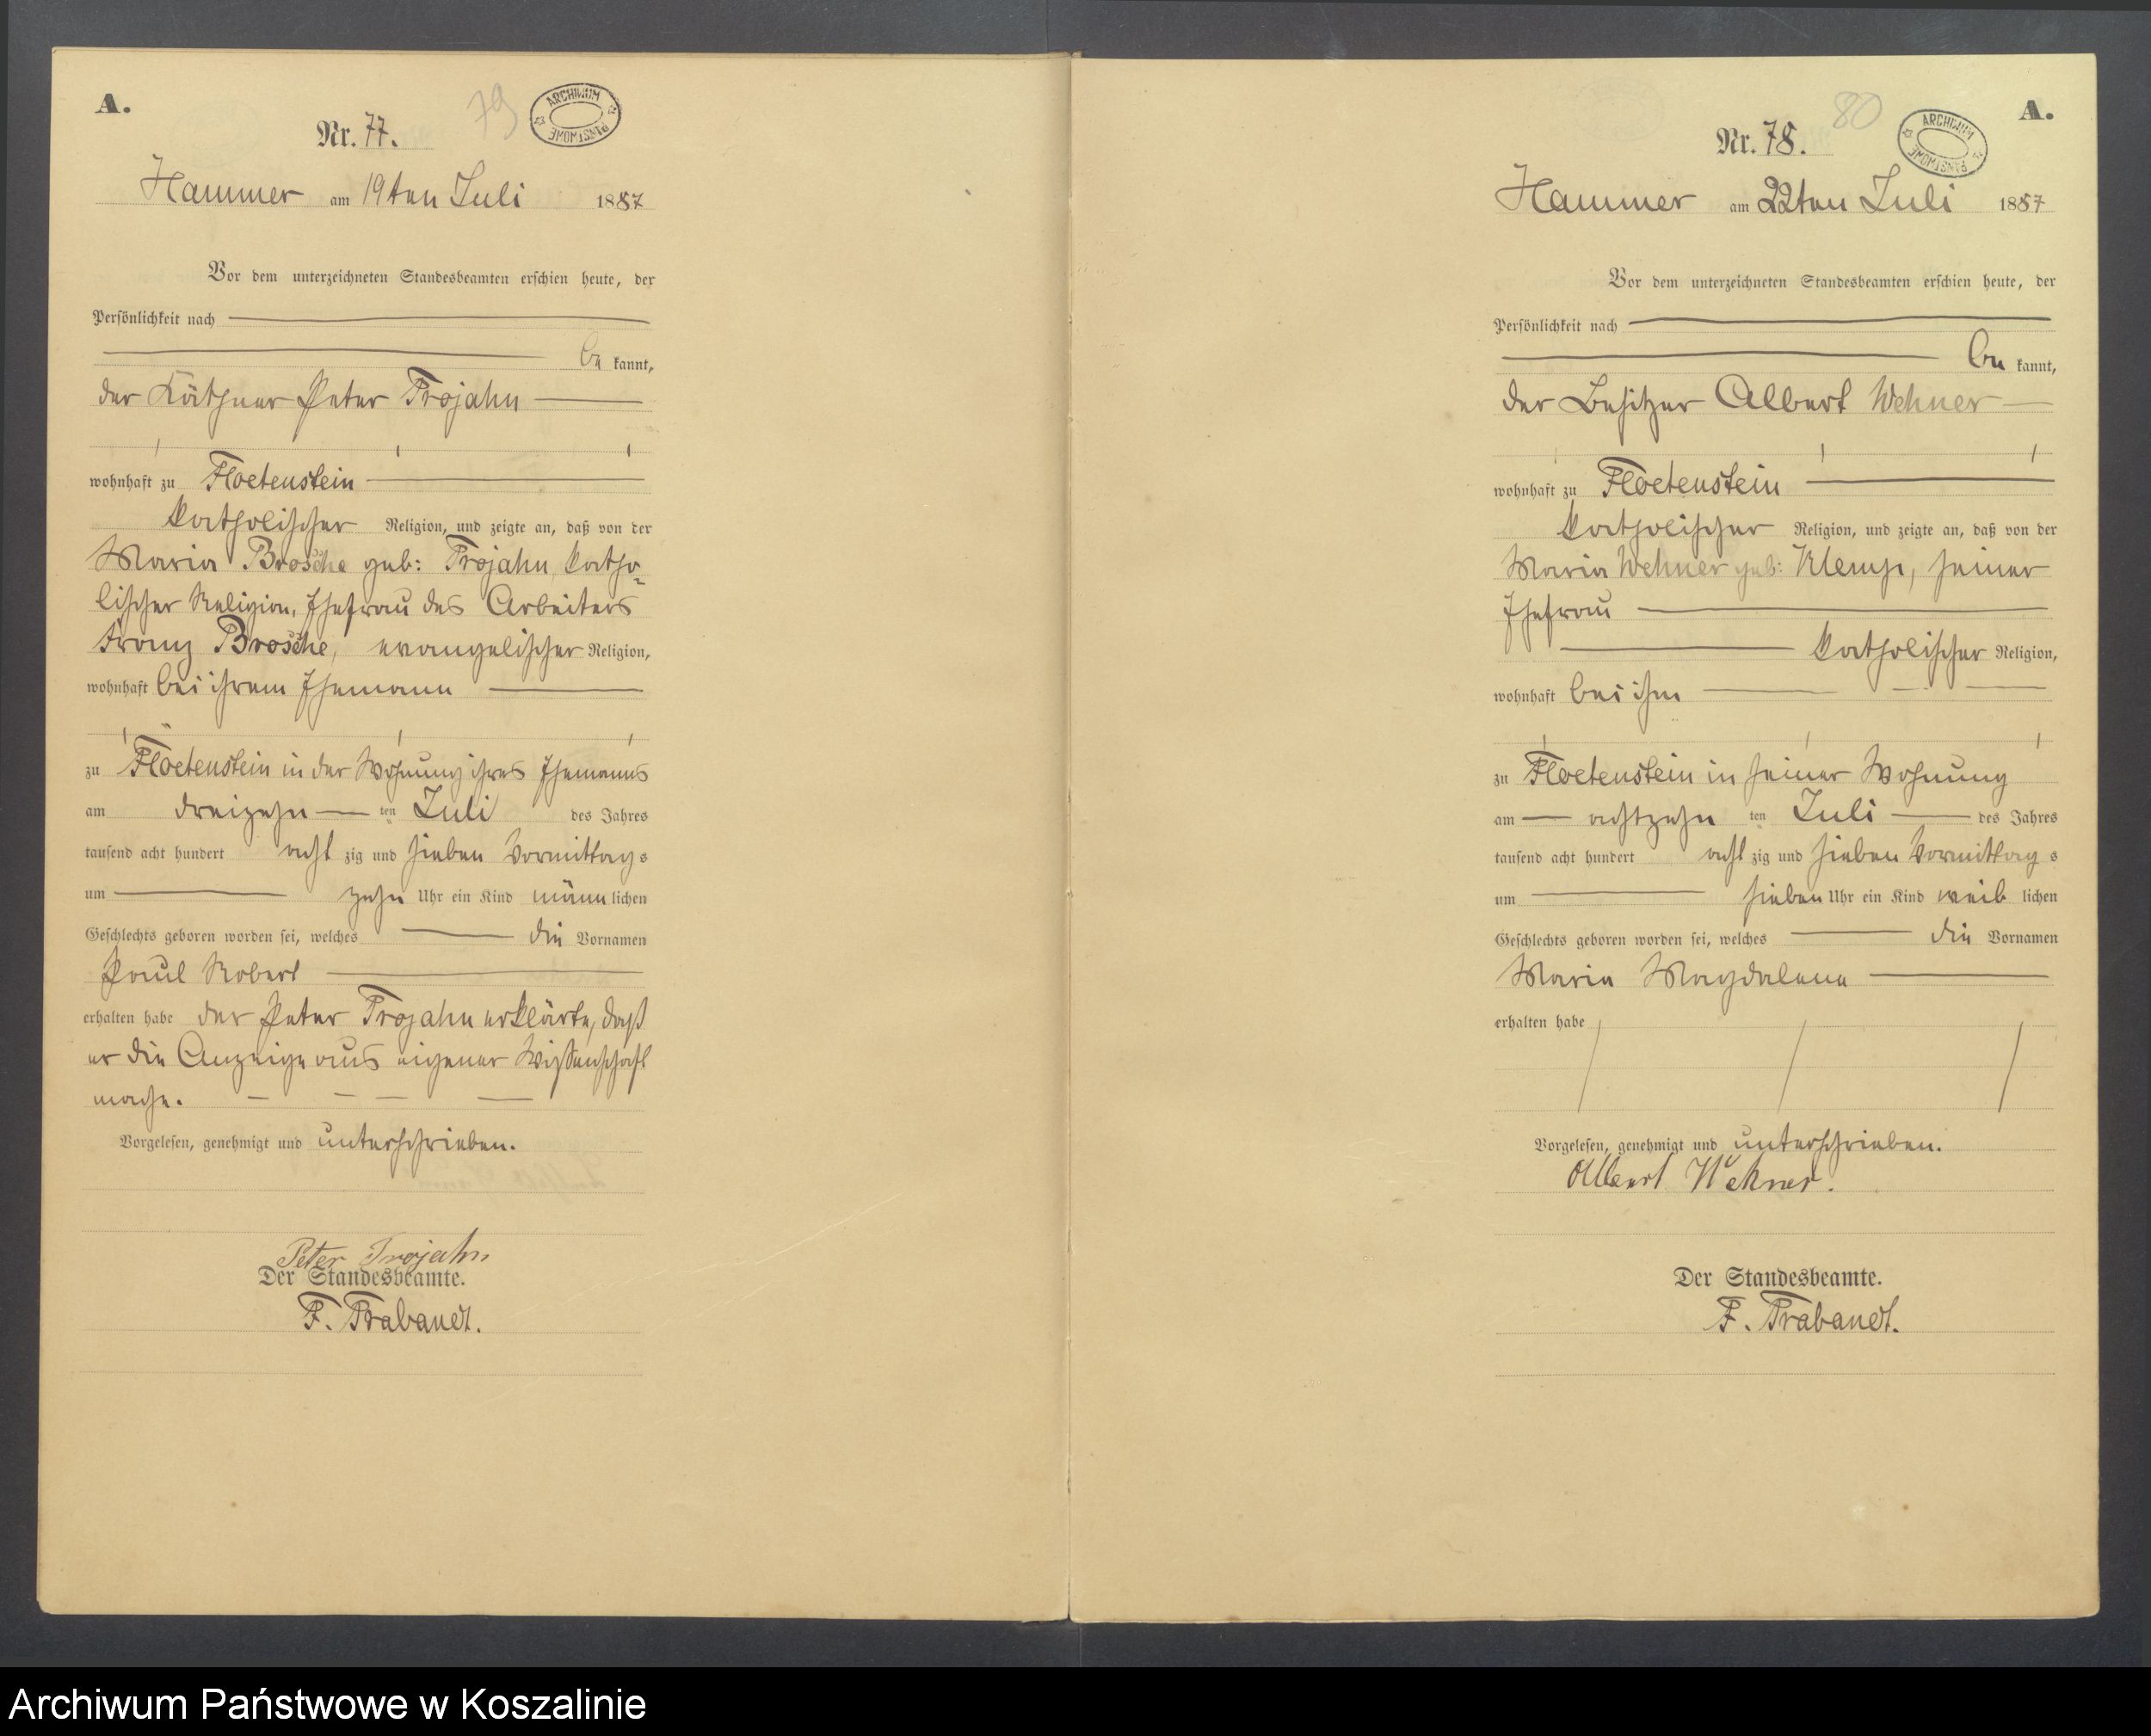 A.
Nr. 77.
79
ARCHIWUM PAŃSTWOWE
Hammer am 19ten Juli 1887
Vor dem unterzeichneten Standesbeamten erschien heute, der
Persönlichkeit nach
be kannt,
der Käthner Peter Trojahn
wohnhaft zu Floetenstein
katholischer Religion, und zeigte an, daß von der
Maria Brosche geb: Trojahn, katho-
lischer Religion, Ehefrau des Arbeiters
Franz Brosche, evangelischer Religion,
wohnhaft bei ihrem Ehemann
zu Floetenstein in der Wohnung ihres Ehemanns
am dreizehn ten Juli des Jahres
tausend acht hundert acht zig und sieben Vormittags
um zehn Uhr ein Kind männ lichen
Geschlechts geboren worden sei, welches die Vornamen
Paul Robert
erhalten habe der Peter Trojahn erklärte, daß
er die Anzeige aus eigener Wissenschaft
mache.
Vorgelesen, genehmigt und unterschrieben.
Peter Trojahn
Der Standesbeamte.
F. Trabandt.
A.
Nr. 78.
80
ARCHIWUM PAŃSTWOWE
Hammer am 22ten Juli 1887
Vor dem unterzeichneten Standesbeamten erschien heute, der
Persönlichkeit nach
be kannt,
der Besitzer Albert Wehner
wohnhaft zu Floetenstein
katholischer Religion, und zeigte an, daß von der
Maria Wehner geb: Klemp, seiner
Ehefrau
katholischer Religion,
wohnhaft bei ihm
zu Floetenstein in seiner Wohnung
am achtzehn ten Juli des Jahres
tausend acht hundert acht zig und sieben Vormittag s
um sieben Uhr ein Kind weib lichen
Geschlechts geboren worden sei, welches die Vornamen
Maria Magdalena
erhalten habe
Vorgelesen, genehmigt und unterschrieben.
Albert Wehner.
Der Standesbeamte.
F. Trabandt.
Archiwum Państwowe w Koszalinie